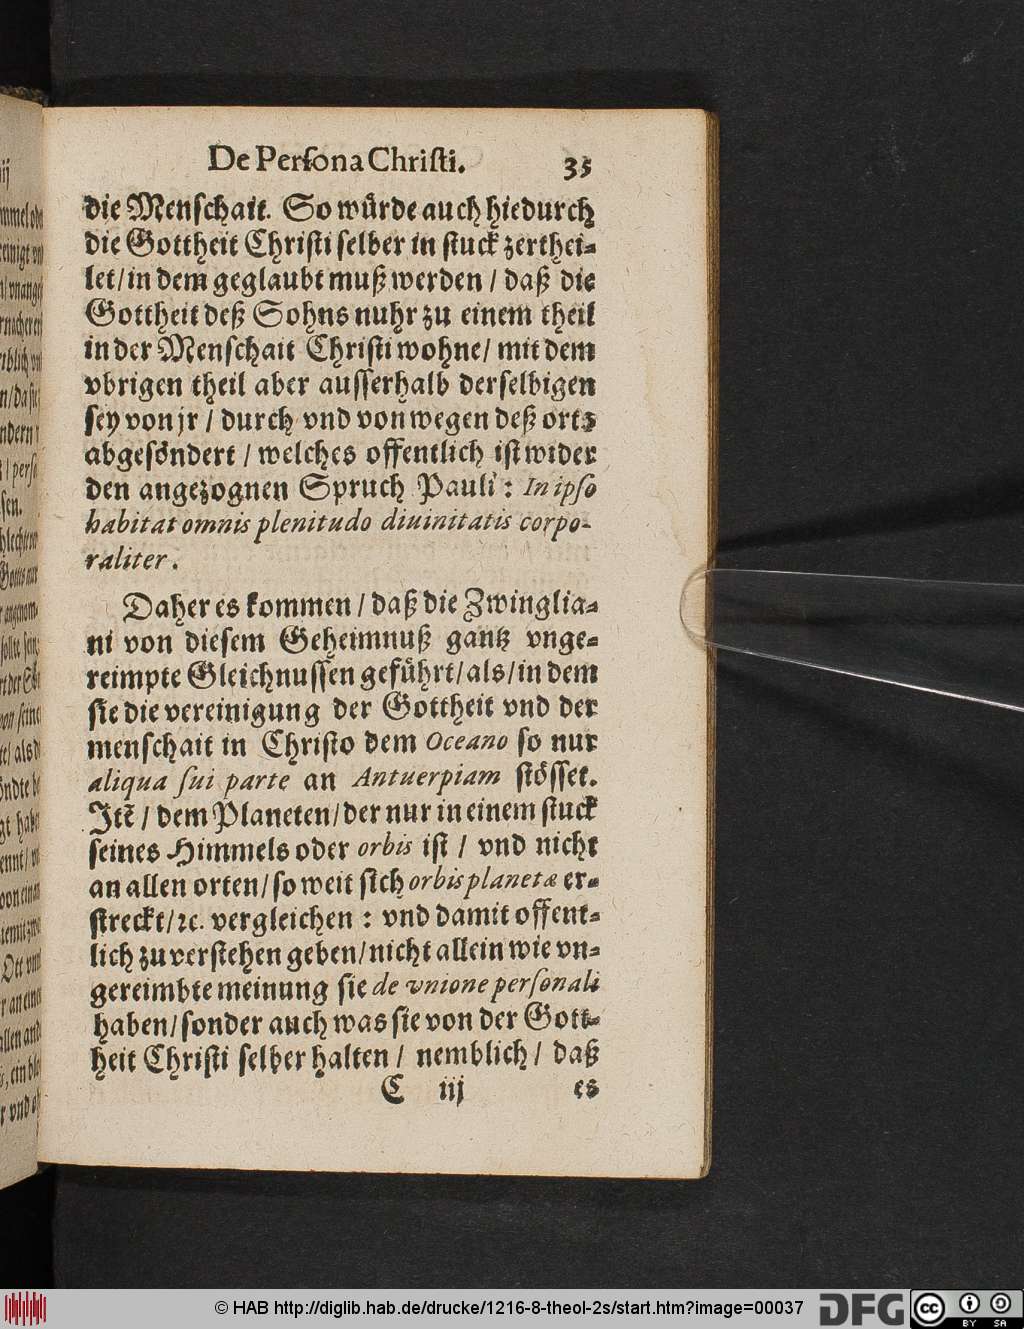 De Persona Christi. 35
die Menschait. So würde auch hiedurch
die Gottheit Christi selber in stuck zerthei-
let/ in dem geglaubt muß werden / daß die
Gottheit deß Sohns nuhr zu einem theil
in der Menschait Christi wohne/ mit dem
vbrigen theil aber ausserhalb derselbigen
sey von jr / durch vnd von wegen deß orts
abgesöndert / welches offentlich ist wider
den angezognen Spruch Pauli : In ipso
habitat omnis plenitudo diuinitatis corpo-
raliter.
Daher es kommen / daß die Zwinglia-
ni von diesem Geheimnuß gantz vnge-
reimpte Gleichnussen geführt/ als/ in dem
sie die vereinigung der Gottheit vnd der
menschait in Christo dem Oceano so nur
aliqua sui parte an Antuerpiam stösset.
Itẽ / dem Planeten/ der nur in einem stuck
seines Himmels oder orbis ist / vnd nicht
an allen orten/ so weit sich orbis planetæ er-
streckt/ ꝛc. vergleichen : vnd damit offent-
lich zu verstehen geben/ nicht allein wie vn-
gereimbte meinung sie de vnione personali
haben/ sonder auch was sie von der Gott-
heit Christi selber halten / nemblich / daß
C iij es
© HAB http://diglib.hab.de/drucke/1216-8-theol-2s/start.htm?image=00037 DFG cc BY SA